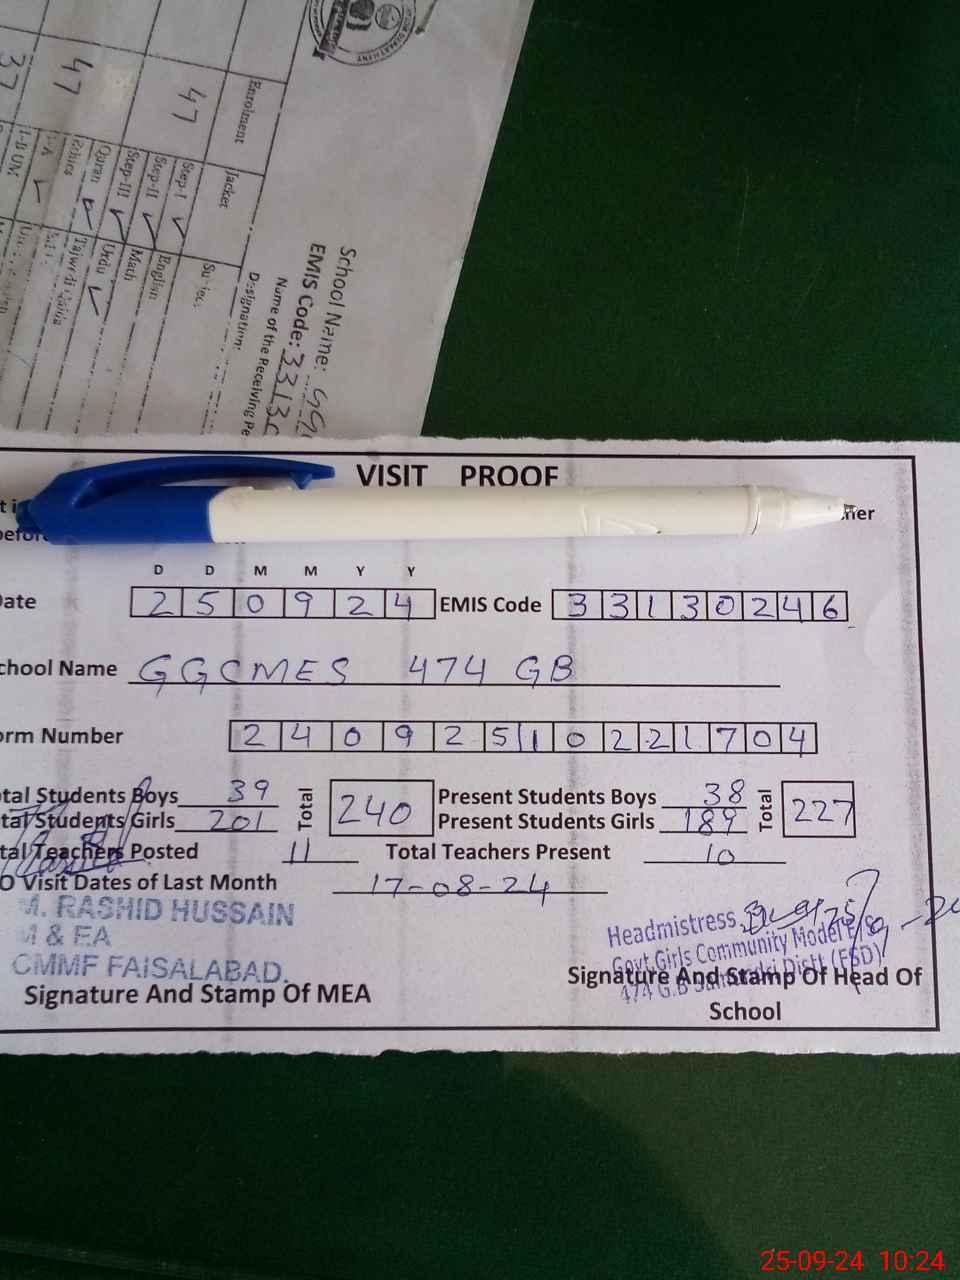 Enrolment
Jacker
47
47
37
Step-I
Step-II
Step-III
Quran
Ethics
I-A
I-B UM
English
Math
Urdu
School Name:
EMIS Code: 3313
Name of the Receiving Pe
Designation:
VISIT PROOF
D D M M Y Y
Date 2 5 0 9 2 4 EMIS Code 3 3 1 3 0 2 4 6
chool Name GGCMES 474 GB
orm Number 2 4 0 9 2 5 1 0 2 2 1 7 0 4
tal Students Boys 39 Total 240 Present Students Boys 38 Total 227
tal Students Girls 201 Present Students Girls 189
tal Teachers Posted 11 Total Teachers Present 10
O Visit Dates of Last Month 17-08-24
M. RASHID HUSSAIN
M & EA
CMMF FAISALABAD.
Signature And Stamp Of MEA
Headmistress
Govt. Girls Community Model E/S
474 G.B Distt (FSD)
Signature And Stamp Of Head Of
School
25-09-24 10:24